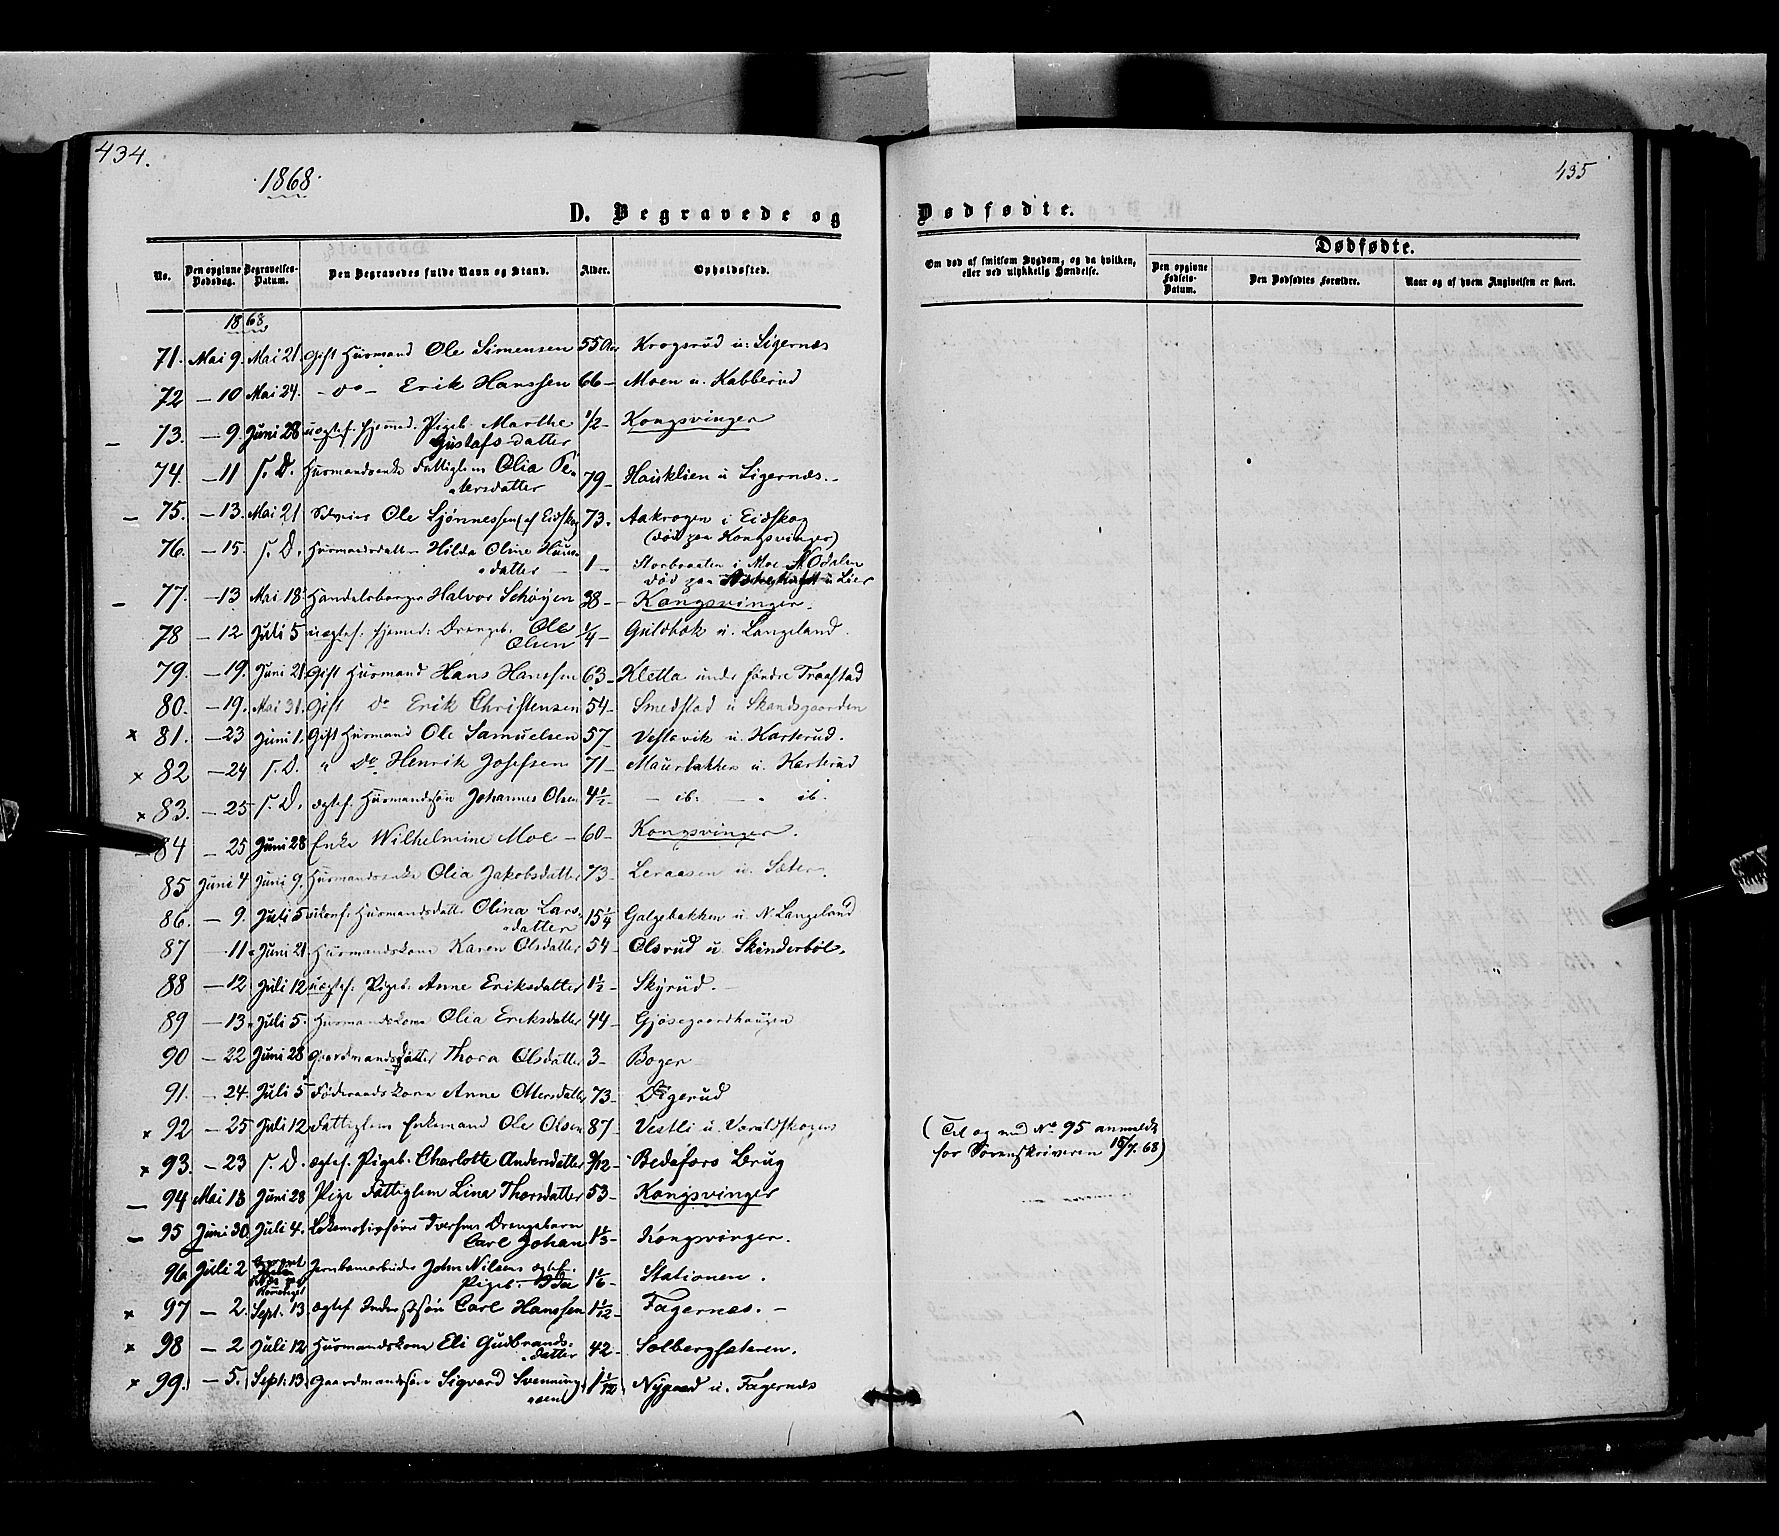 434.
1868.
D. Begravede og
No.
Den opgivne Dødsdag.
Begravelses-Datum.
Den Begravedes fulde Navn og Stand.
Alder.
Opholdssted.
1868
71. Mai 9. Mai 21. Gift Husmand Ole Simensen 55 Aar Krogsrud u: Sigernæs
72 — 10 Mai 24. - do - Erik Hanssen 66 - Moen u. Kabberud
— 73. — 9. Juni 28 uægtef. hjemmed. Pigeb. Marthe 1/2 - Kongsvinger
Gustafsdatter
74. — 11 s. D. Husmandsenke Fattiglem Olia Pe-
tersdatter 79 - Hauklien u Sigernæs. -
— 75. — 13. Mai 21 Ole Sjönnessen (af Eidskog 73. Aakrogen i Eidskog
(död paa Kongsvinger)
76. — 15. s. D. Husmandsdatter Hilda Oline Hans-
datter 1 - Storbraaten i Moe N. Odalen
död paa u Lier
— 77. — 13 Mai 18. Handelsborger Halvor Schøyen 38 - Kongsvinger.
78 — 12 Juli 5 uægtef. hjemmed: Drengeb. Ole 1/4 - Guldbæk u. Langeland.
Olsen
79. — 19. Juni 21. Gift Husmand Hans Hanssen 63 - Kletta under söndre Traastad
80. — 19. Mai 31. Gift do Erik Christensen 54 - Smedstad u Skandsgaarden
x 81. — 23 Juni 1. Gift Husmand Ole Samuelsen 57 - Vestavik u. Harterud.
x 82 — 24 s. D. " Do Henrik Josefsen 71 - Maurbakken u. Harterud
x 83. — 25 s. D. ægtef. Husmandssön Johannes Olsen 4 1/2 - — ib. — ib.
— 84 — 25 Juni 28 Enke Wilhelmine Moe - 60 - Kongsvinger.
85 Juni 4 Juni 9. Husmandsenke Olia Jakobsdatter 73 - Leraasen u. Sæter.
86. — 9. Juli 5 ukonf. Husmandsdatter Olina Lars-
datter 15 1/4 Galgebakken u. N. Langeland
87 — 11 Juni 21 Husmandskone Karen Olsdatter 54 - Olsrud u. Skinderböl.
88 — 12 Juli 12 uægtef. Pigeb. Anne Eriksdatter 1 1/2 - Skyrud. -
89 — 13 Juli 5. Husmandskone Olia Eriksdatter 44 - Gjösegaardhaugen
90 — 22 Juni 28 Gaardmandsdatter Thora Olsdatter 3 - Boger
91. — 24. Juli 5 Föderaadskone Anne Ottersdatter 73 - Digerud
x 92 — 25 Juli 12 Fattiglem Enkemand Ole Olsen 87 - Vestli u. Varaldskogen
x 93. — 23 s. D. ægtef. Pigeb. Charlotte Andersdatter 9/12 - Bedafors Brug
— 94 Mai 18 Juni 28 Pige Fattiglem Lina Thorsdatter 53 - Kongsvinger
— 95 Juni 30. Juli 4. Lokemotivförer Iversens Drengebarn
Carl Johan 1 1/3 - Kongsvinger.
96 Juli 2 Jernbanarbeider John Nilsens ægtef.
Pigeb. Ida 1 1/6 - Stationen.
x 97 — 2. Sept. 13 ægtef Inderstsön Carl Hanssen 1 1/12 - Fagernæs. -
x 98 — 2 Juli 12 Husmandskone Eli Gudbrands-
datter 42 - Solbergsæteren.
x 99. — 5. Sept. 13. Gaardmandssön Sigvard Svenning-
sen 1 1/12 Nygaard u. Fagernæs
435
Dødfødte.
Om død af smitsom Sygdom, og da hvilken,
eller ved ulykkelig Hændelse.
Dødfødte.
Den opgivne Fødsels-Datum.
Den Dødfødtes Forældre.
Naar og af hvem Angivelsen er skeet.
(Til og med No 95 anmeldt
for Sorenskriveren 15/7. 68)